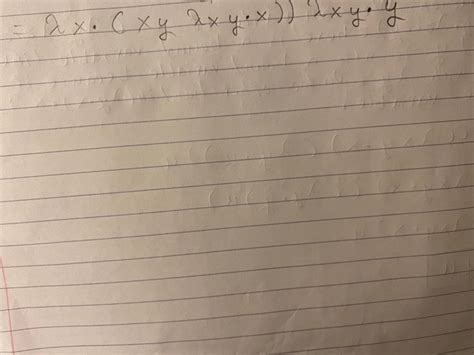 = λx.(xy λxy.x)) λxy.y